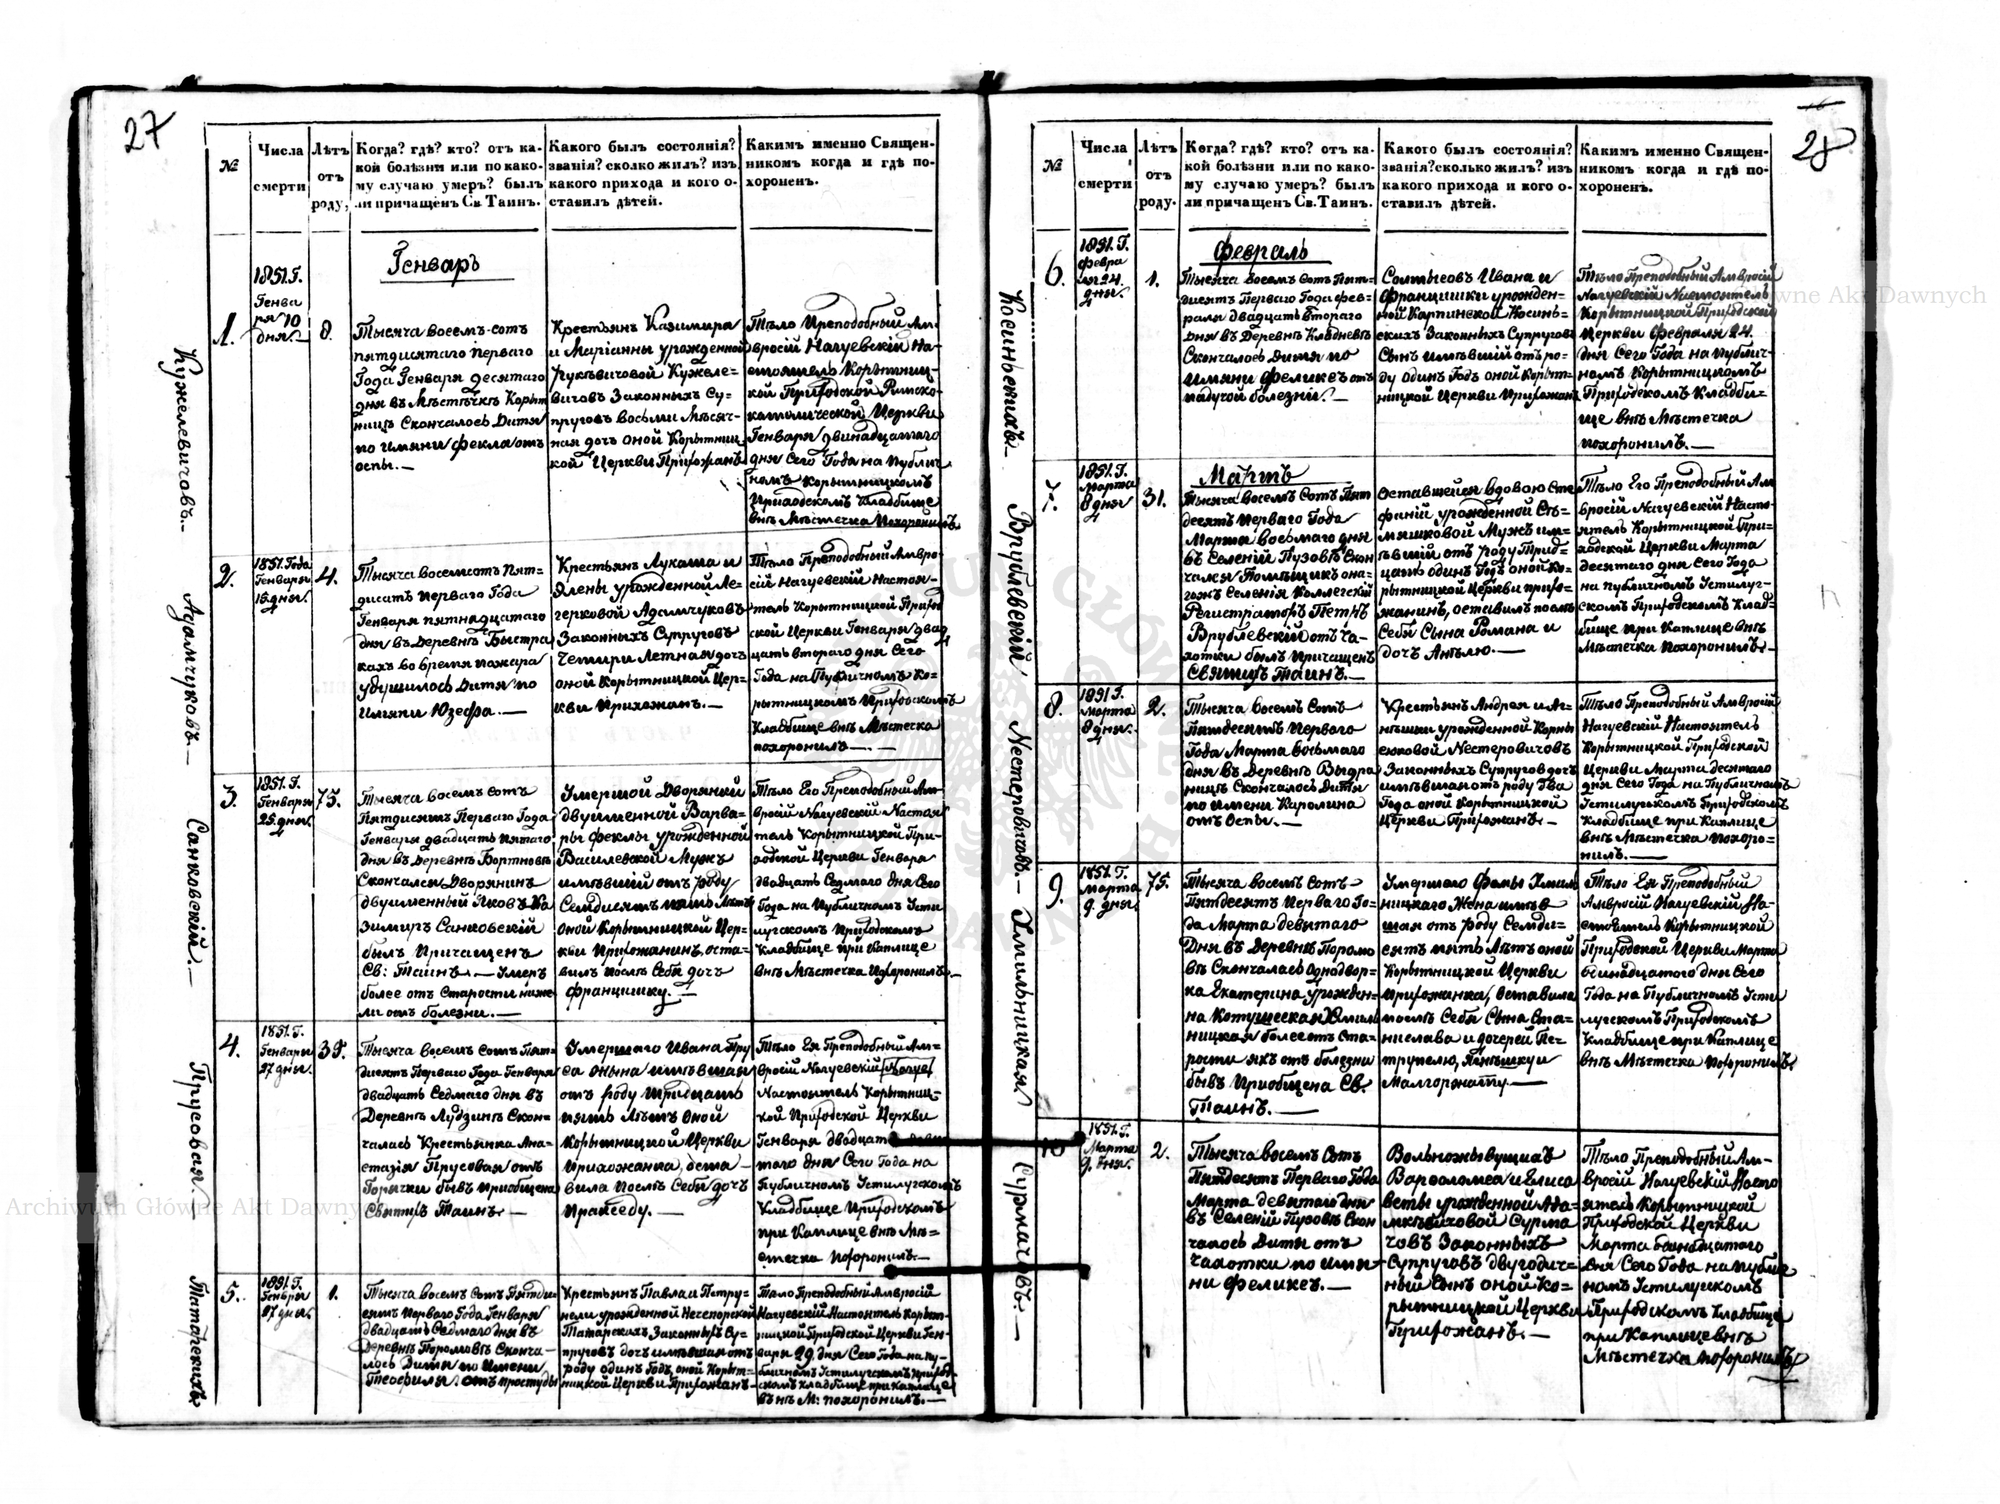 27
№
Числа
смерти
Лѣтъ
отъ
роду,
Когда? гдѣ? кто? отъ ка-
кой болѣзни или по како-
му случаю умеръ? былъ
ли причащенъ Св. Таинъ.
Какого былъ состоянія?
званія? сколко жилъ? изъ
какого прихода и кого о-
ставилъ дѣтей.
Каким именно Священ-
никомъ когда и гдѣ по-
хороненъ.
Кужелевичовъ.—
1.
1851. Г.
Генва
ря 10
дня.—
8.
Генварь
Тысяча восемъ сотъ
пятдисятаго перваго
Года Генваря десятаго
дня въ Мѣстѣчкѣ Корыт
ницѣ Скончалось Дитя
по имяни Фекла отъ
оспы.—
Крестьянъ Казимира
и Маріанны урожденной
Кужеле=
вичовъ Законныхъ Су-
пруговъ восьми Мѣсяч-
ная дочъ оной Корытниц
кой Церкви Прихожанъ
Тѣло Преподобный Ам-
вросій Нагуевскій На-
стоятель Корытниц-
кой Приходской Римско-
католической Церкви
Генваря двинадцатаго
дня Сего Года на Публич
номъ Корытницкомъ
Приходскомъ Кладбище
внѣ Мѣстечка Похоронилъ.
Адамчуковъ.—
2.
1851. Года
Генваря
18 дня.
4.
Тысяча восемсотъ Пят-
дисатъ перваго Года
Генваря пятнадцатаго
дня въ Деревнѣ Быстра
кахъ во время пожара
удушилось Дитя по
Имяни Юзефа.—
Крестьянъ Лукаша и
Елены урожденной Ле-
герковой Адамчуковъ
Законныхъ Супруговъ
Чет́ири Летная дочъ
оной Корытницкой Цер=
кви Прихожанъ.—
Тѣло Преподобный Амвро-
сій Нагуевскій Настоя-
тель Корытницкой Приход
ской Церкви Генваря двад
цать втораго дня Сего
Года на Публичномъ Ко-
рытницкомъ Приходскомъ
Кладбище внѣ Мѣстечка
похоронилъ.—
Санковскій.—
3.
1851. Г.
Генваря
25. дня.
75.
Тысяча восемъ сотъ
Пятдисятъ Перваго Года
Генваря двадцать пятаго
дня въ Деревнѣ Бортновѣ
Скончался Дворянинъ
двуименный Яковъ Ка
зимиръ Санковскій
былъ Причащенъ
Св: Таинъ.— Умеръ
более отъ Старости ниже
ли отъ болезни.—
Умершой Дворянки
двуименной Варва-
ры Феклы урожденной
Василевской Мужъ
имѣвшій отъ роду
Семдисятъ пять Лѣтъ
оной Корытницкой Цер-
кви Прихожанинъ, оста-
вилъ послѣ Себя дочъ
Францишку.—
Тѣло Его Преподобный Ам-
вросій Нагуевскій Настоя
тель Корытницкой При-
ходской Церкви Генвара
двадцать Седмаго дня Сего
Года на Публичномъ Усти
лугскомъ Приходскомъ
Кладбище при Каплице
внѣ Мѣстечка Похоронилъ.—
Прусовая.—
4.
1851. Г.
Генваря
27 дня.
35.
Тысяча восемъ сотъ Пят-
дисятъ Перваго Года Генваря
двадцать Седмаго дня въ
Деревнѣ Лудзинѣ Скон-
чалась Крестьянка Ана-
стазія Прусовая отъ
Горячки бывъ Приобщена
Святыхъ Таинъ.—
Умершаго Ивана Пру
са Жына имѣвшая
отъ роду Тридцать
пять Лѣтъ оной
Корытницкой Церкви
Прихожанка, оста-
вила послѣ Себя дочъ
Пракседу.—
Тѣло Ея Преподобный Ам-
вросій Нагуевскій
Настоятель Корытниц-
кой Приходской Церкви
Генваря двадцать
таго дня Сего Года на
Публичномъ Устилугскомъ
Кладбище Приходскомъ
при Каплице внѣ Мѣ=
стечка похоронилъ.—
Татарскихъ
5.
1851. Г.
Генваря
27 дня.
1.
Тысяча восемъ сотъ Пятди-
сятъ Перваго Года Генваря
двадцать Седмаго дня въ
Деревнѣ Поромовѣ Сконча-
лось Дитя по имени
Теофиля. отъ простуды
Крестьянъ Павла и Петру-
нели урожденной Нечепорской
Татарскихъ Законныхъ Су-
пруговъ дочъ имѣвшая отъ
роду одинъ Годъ, оной Корыт-
ницкой Церкви Прихожанъ-
Тѣло Преподобный Амвросій
Нагуевскій Настоятель Корыт-
ницкой Приходской Церкви Ген-
варя 29 дня Сего Года на пу-
бличномъ Устилугскомъ Приход-
скомъ кладбище при каплице
внѣ М: похоронилъ.—
28
№
Числа
смерти
Лѣтъ
отъ
роду.
Когда? гдѣ? кто? отъ ка-
кой болѣзни или по како-
му случаю умеръ? былъ
ли причащенъ Св. Таинъ.
Какого былъ состоянія?
званія? сколько жилъ? изъ
какого прихода и кого о-
ставилъ дѣтей.
Каким именно Священ-
никомъ когда и гдѣ по-
хороненъ.
Косинскихъ.—
6.
1851. Г.
Февра
ля 24.
дня.
1.
Февраль
Тысяча восемъ сотъ Пят-
дисятъ Перваго Года Фев-
раля двадцать втораго
дня въ Деревнѣ
Скончалось Дитя по
имяни Феликсъ отъ
падучой болезни.—
Солтысовъ Ивана и
Францишки урожден-
ной Карпинской Косинь-
скихъ Законныхъ Супруговъ
Сынъ имѣвшій отъ ро-
ду одинъ Годъ оной Корыт-
ницкой Церкви Прихожанъ
Тѣло Преподобный Амвросій
Нагуевскій Настоятель
Корытницкой Приходской
Церкви Февраля 24.
дня Сего Года на Публич-
номъ Корытницкомъ
Приходскомъ Кладби-
ще внѣ Мѣстечка
похоронилъ.—
Врублевскій,
7.
1851. Г.
Марта
8 дня
31.
Мартъ
Тысяча восемъ Сотъ Пят
десятъ перваго Года
Марта восьмаго дня
въ Селеній Пузовѣ Скон
чался Помѣщикъ она-
гожъ Селенія Коллегскій
Регистраторъ Петръ
Врублевскій отъ Ча-
хотки былъ Причащенъ
Святыхъ Таинъ.—
Оставшейся вдовою Сте
фаній урожденной
Мужъ им-
ѣвшій отъ роду Трид-
цать одинъ Годъ оной Ко-
рытницкой Церкви прихо-
жанинъ, оставилъ послѣ
Себя Сына Романа и
дочъ Анѣлю.—
Тѣло Его Преподобный Ам
вросій Нагуевскій Насто-
ятель Корытницкой При-
ходской Церкви Марта
десятаго дня Сего Года
на публичномъ Устилуг-
скомъ Приходскомъ Клад-
бище при Каплице внѣ
Мѣстечка Похоронилъ.
Нестеровичовъ.—
8.
1851 Г.
Марта
8 дня.
2.
Тысяча восемъ Сотъ
Пятдесятъ Перваго
Года Марта восьмаго
дня въ Деревнѣ Выдра
ницѣ Скончалось Дитя
по имени Каролина
отъ Оспы.—
Крестьянъ Андрея и Аг-
нѣшки урожденной Корнѣ
еюковой Нестеровичовъ
Законныхъ Супруговъ дочъ
имѣвша отъ роду Два
Года оной Корытницкой
Церкви Прихожанъ.—
Тѣло Преподобный Амвросій
Нагуевскій Настоятель
Корытницкой Приходской
Церкви Марта десятаго
дня Сего Года на Публичномъ
Устилугскомъ Приходскомъ
Кладбище при Каплице
внѣ Мѣстечка похоро-
нилъ.—
Хмильницкая
9.
1851. Г.
Марта
9. дня.
75.
Тысяча восемъ сотъ
Пятдесятъ Перваго Го-
да Марта девятаго
Дня въ Деревнѣ Поромо
вѣ Скончалась Однодвор-
ка Екатерина урожден-
на Хмиль
ницкая более отъ Ста-
рости якъ отъ болезни
бывъ Приобщена Св.
Таинъ.—
Умершаго Фомы Хмиль
ницкаго Жена имѣв
шая отъ роду Семди-
сятъ пять Лѣтъ оной
Корытницкой Церкви
прихожанка, Оставила
послѣ Себя Сына Ста-
нислава и дочерей Пе-
трунелю, Агнѣшку и
Малгоржату.—
Тѣло Ея Преподобный
Амвросій Нагуевскій На-
стоятель Корытницкой
Приходской Церкви Марта
динадцатого дня Сего
Года на Публичномъ Усти
лугскомъ Приходскомъ
Кладбище при Каплице
внѣ Мѣстечка похоронилъ.
Сурмачовъ.—
10
1851. Г.
Марта
9. дня.
2.
Тысяча восемъ Сотъ
Пятдесятъ Перваго Года
Марта девятаго дня
въ Селеній Пузовѣ Скон
чалось Дитя отъ
Чахотки по имя-
ни Феликсъ.—
Вольноживущихъ
Варфоломея и Елиса
веты урожденной Ада-
Сурма
човъ Законныхъ
Супруговъ двугодич-
ный Сынъ оной Ко-
рытницкой Церкви
Прихожанъ.—
Тѣло Преподобный Ам-
вросій Нагуевскій Насто
ятель Корытницкой
Приходской Церкви
Марта
дня Сего Года на публи
номъ Устилугскомъ
Приходскомъ Кладбище
при Каплице внѣ
Мѣстечка похоронилъ
Archiwum Główne Akt Dawnych
Główne Akt Dawnych